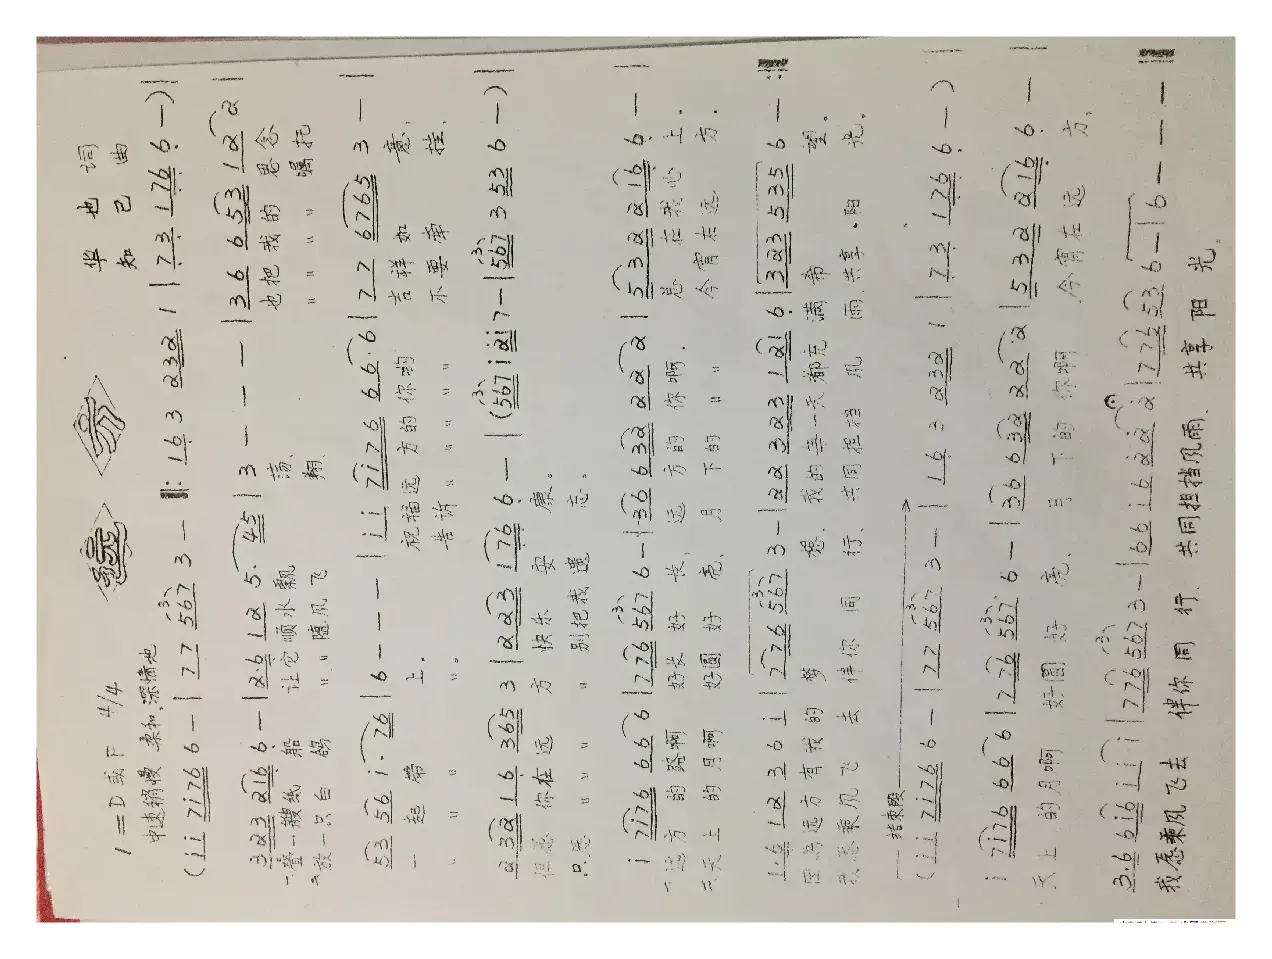 远方
华也词
知己曲
1=D或F 4/4
中速稍慢 柔和、深情地
(i i 7i76 6 — | 7 7 567 3 — ‖: 1 6 3 232 1 | 7 3 176 6 —) |
323 216 6 — | 2·6 12 5· 45 | 3 — — — | 36 653 12 2 |
一叠一艘纸船 让它顺水飘荡、 也把我的思念
二放一只白鸽 〃〃随风飞翔、 〃〃〃〃嘱托
53 56 i· 76 | 6 — — — | i i 7i76 66·6 | 77 6765 3 — |
一起带上。 祝福远方的你哟 吉祥如意、
〃〃〃〃。 告许〃〃〃〃〃 不要牵挂、
232 16 365 3 | 223 176 6 — | (567 i 2i7 — | 567 3 53 6 —) |
但愿你在远方 快乐安康。
只愿〃〃〃〃 别把我遗忘。
i 7i76 66 6 | 776 567 6 — | 36 632 22 2 | 532 216 6 — |
一远方的路啊 好长好长、 远方的你啊、 总在我心上。
二天上的月啊 好圆好亮、 月下的〃〃 今宵在远方。
1·6 12 36 i | 776 567 3 — | 22 323 121 6 | 323 535 6 — :‖
因为远方有我的梦想、 我的每一天都充满希望。
我愿乘风飞去 伴你同行、 共同担挡风雨、共享·阳光。
结束段
(i i 7i76 6 — | 77 567 3 — | 1 6 3 232 1 | 7 3 176 6 —) |
i 7i76 66 6 | 776 567 6 — | 36 632 22·2 | 532 216 6 — |
天上的月啊 好圆好亮、 月下的你啊 今宵在远方。
3·6 6i6 ii i | 776 567 3 — | 66 i6 22 2 | 776 53 6 — | 6 — — — ‖
我愿乘风飞去 伴你同行、共同担挡风雨、共享阳光。